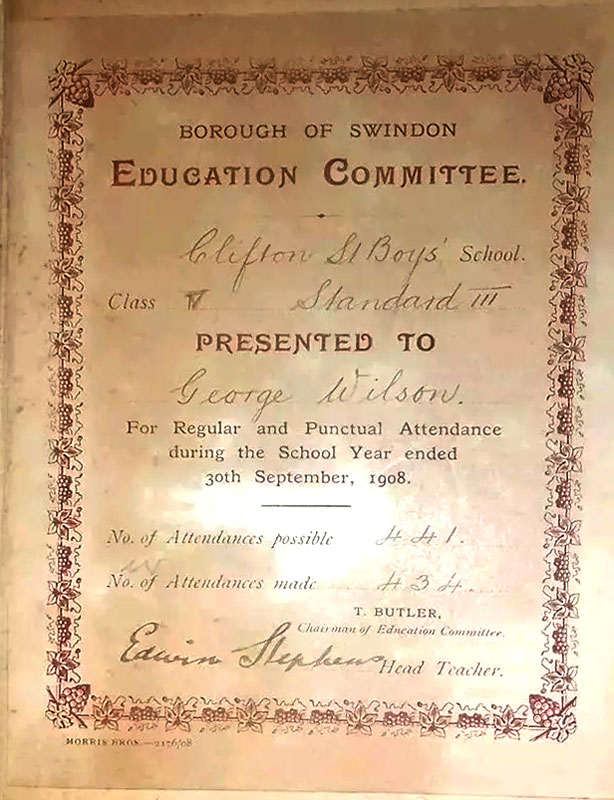 BOROUGH OF SWINDON
EDUCATION COMMITTEE.
Clifton St Boys' School.
Class V Standard III
PRESENTED TO
George Wilson.
For Regular and Punctual Attendance
during the School Year ended
30th September, 1908.
No. of Attendances possible 441.
No. of Attendances made 434.
T. BUTLER,
Chairman of Education Committee.
Edwin Stephens Head Teacher.
MORRIS BROS.—2176/08